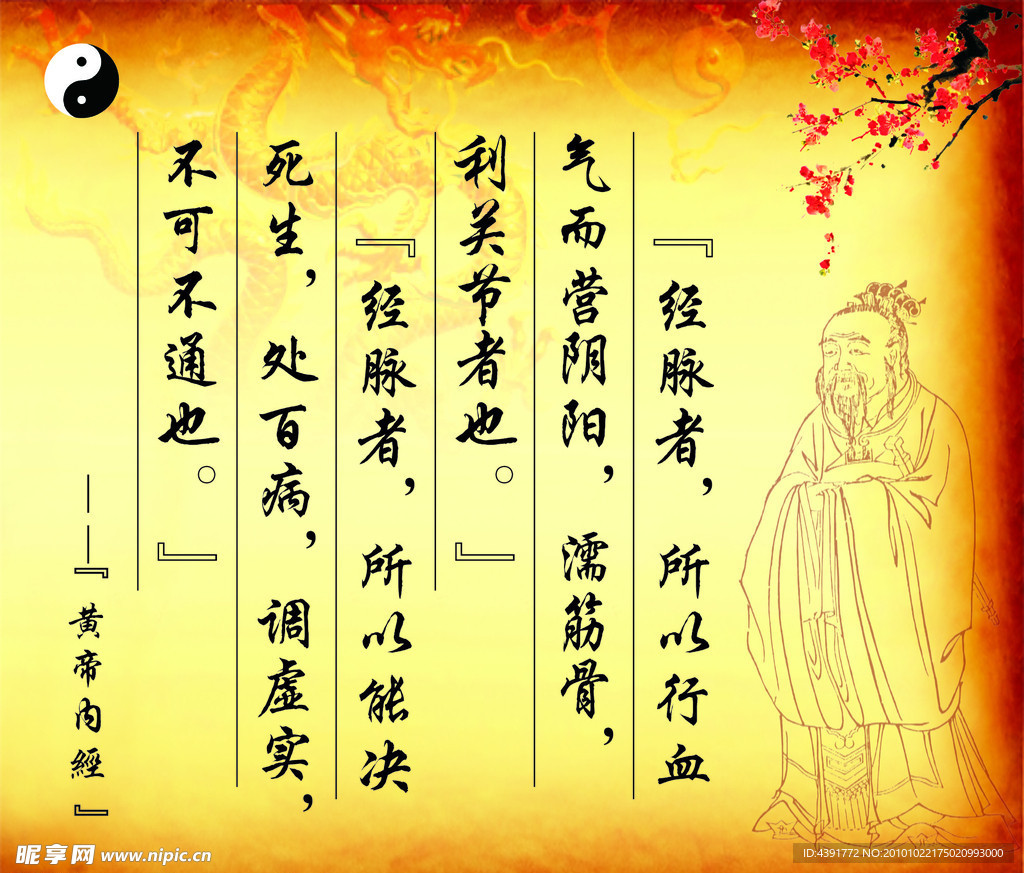 『经脉者，所以行血
气而营阴阳，濡筋骨，
利关节者也。』
『经脉者，所以能决
死生，处百病，调虚实，
不可不通也。』
——『黄帝内經』
昵享网 www.nipic.cn
ID:4391772 NO:20101022175020993000